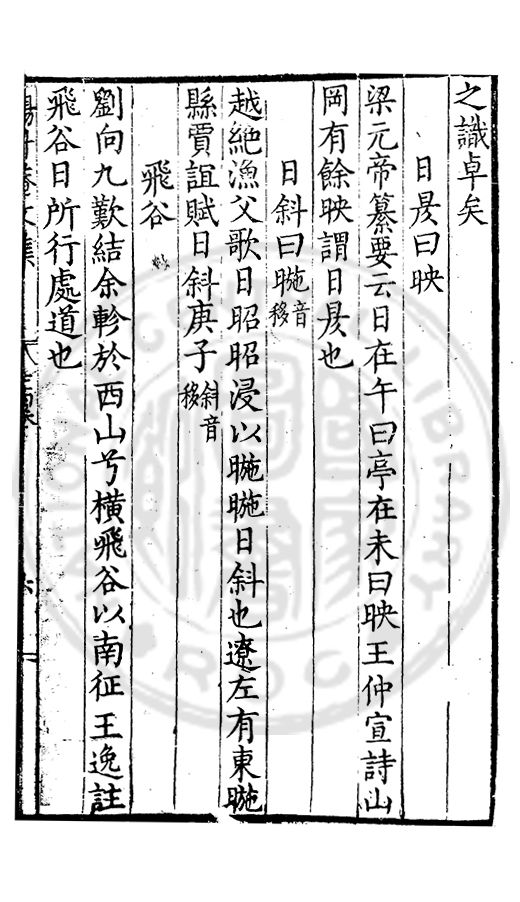 之識卓矣
日昃曰映
梁元帝纂要云日在午曰亭在未曰映王仲宣詩山
岡有餘映謂日昃也
日斜曰暆音移
越絶漁父歌日昭昭浸以暆暆日斜也遼左有東暆
縣賈誼賦日斜庚子斜音移
飛谷
劉向九歎結余軫於西山兮橫飛谷以南征王逸註
飛谷日所行處道也